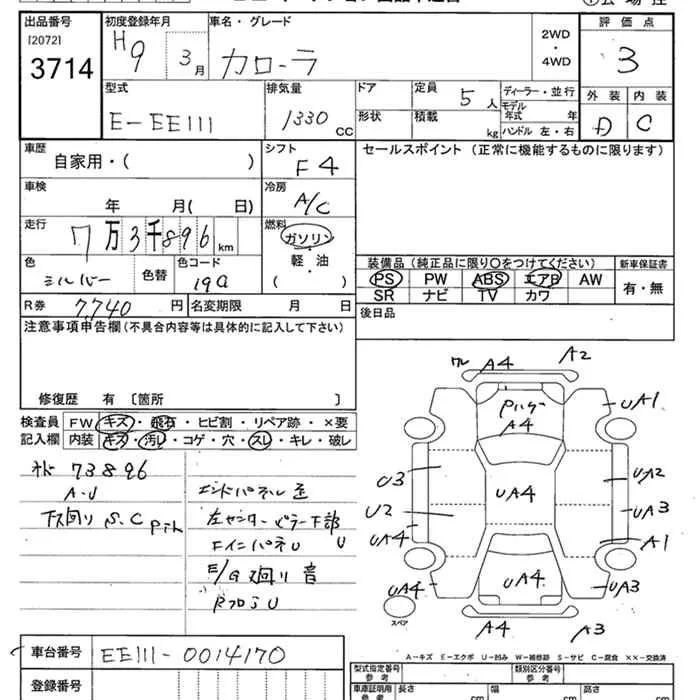 出品番号 初度登録年月 車名・グレード 評価点
[2072]
3714
H9 3月 カローラ 2WD・4WD 3
型式 排気量 ドア 定員 5人 ディーラー・並行 外装 内装
E-EE111 1330cc 形状 積載 kg モデル年式 年 D C
ハンドル 左・右
車歴 シフト セールスポイント (正常に機能するものに限ります)
自家用・( ) F4
車検 冷房
年 月( 日) A/C
走行 燃料
7万3千896km ガソリン・軽油・( )
色 色替 色コード 装備品 (純正品に限り○をつけてください) 新車保証書
シルバー 199 PS PW ABS エアB AW 有・無
SR ナビ TV カワ
R券 7,740円 名変期限 月 日 後日品
注意事項申告欄 (不具合内容等は具体的に記入して下さい)
修復歴 有 [箇所 ]
検査員 FW キズ・飛石・ヒビ割・リペア跡・×要
記入欄 内装 キズ・汚レ・コゲ・穴・スレ・キレ・破レ
73896
A-U
下廻り S.C
エンドパネル歪
左センターピラー下部
FインパネU U
E/G廻り音
A4 A2
A4 UA1
U3 UA4 UA2
U2 UA3
UA4 A1
UA4 UA4 UA3
スペア A4 A3
A-キズ E-エクボ U-凹み W-補修跡 S-サビ C-腐食 ××-交換済
車台番号 EE111-0014170 型式指定番号 参考 類別区分番号 参考
登録番号 車庫証明用 参考 長さ cm 幅 cm 高さ cm